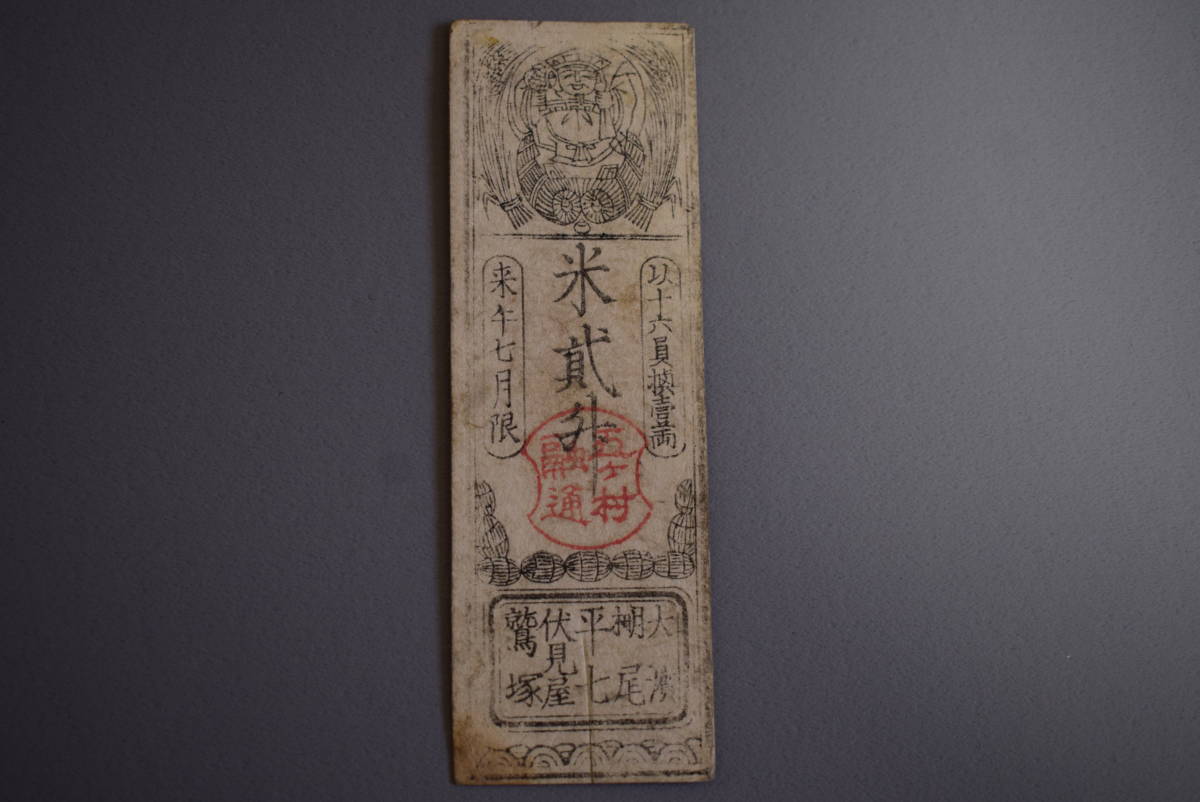 以十六員換壹両
米貳升
来午七月限
五ヶ村
融通
大濱
棚尾
平七
伏見屋
鷲塚